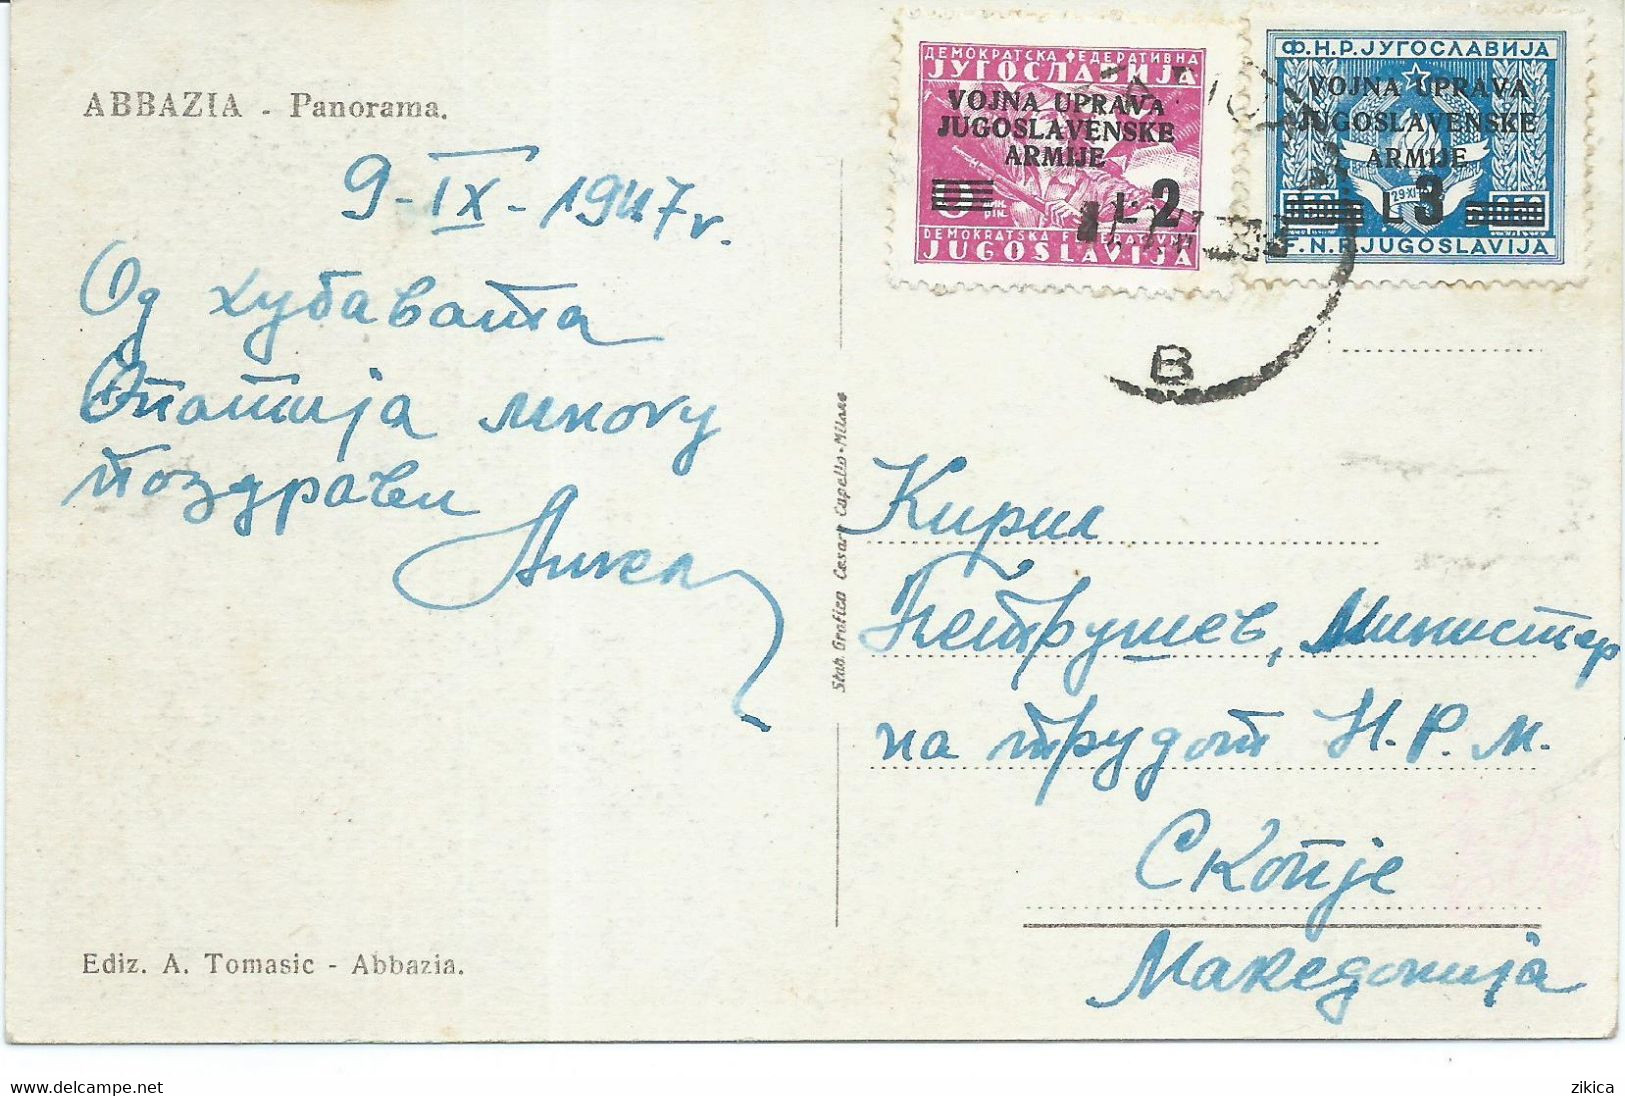 ABBAZIA - Panorama.
9-IX-1947 г.
Од хубавата
Опатија многу
поздрави
Ангел
Ediz. A. Tomasic - Abbazia.
Stab. Grafico Cesare Capello - Milano
ДЕМОКРАТСКА ФЕДЕРАТИВНА
ЈУГОСЛАВИЈА
VOJNA UPRAVA
JUGOSLAVENSKE
ARMIJE
L 2
DEMOKRATSKA FEDERATIVNA
JUGOSLAVIJA
Ф.Н.Р. ЈУГОСЛАВИЈА
VOJNA UPRAVA
JUGOSLAVENSKE
ARMIJE
L 3
F.N.R. JUGOSLAVIJA
B
Кирил
Петрушев, Министер
на трудот Н.Р.М.
Скопје
Македонија
www.delcampe.net
zikica